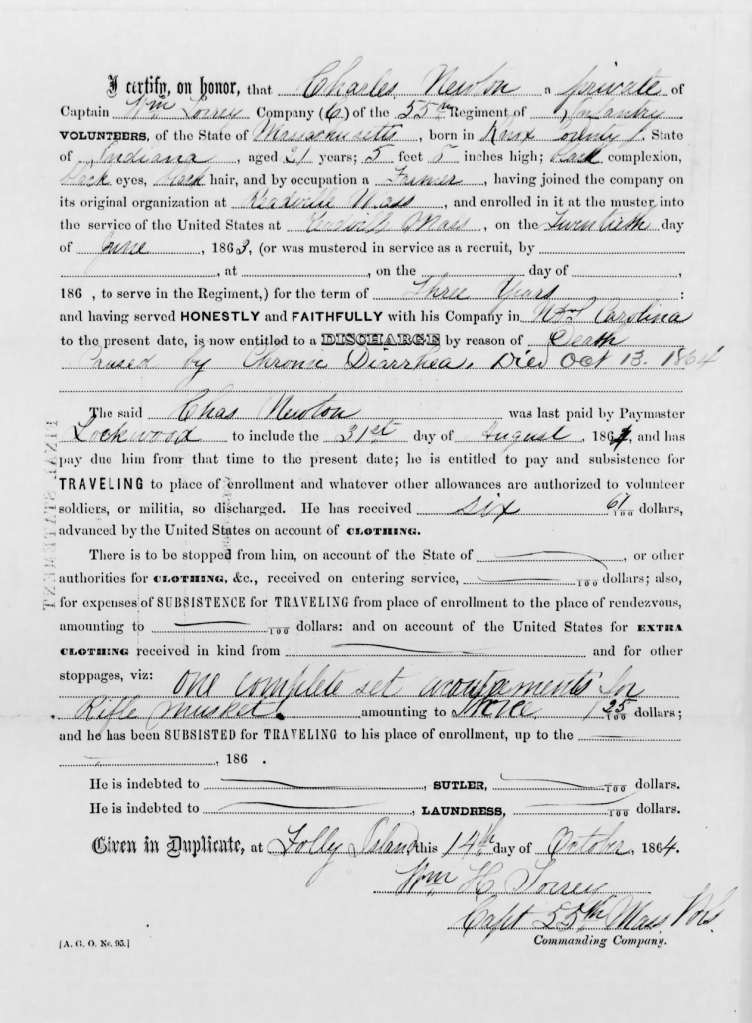 I certify, on honor, that Charles Newton a private of
Captain Wm Torrey Company (C) of the 55th Regiment of Infantry
VOLUNTEERS, of the State of Massachusetts, born in Knox County, State
of Indiana, aged 21 years; 5 feet 5 inches high; Black complexion,
Black eyes, black hair, and by occupation a Farmer, having joined the company on
its original organization at Readville Mass, and enrolled in it at the muster into
the service of the United States at Readville Mass, on the Twentieth day
of June, 1863, (or was mustered in service as a recruit, by
, at , on the day of ,
186 , to serve in the Regiment,) for the term of Three Years :
and having served HONESTLY and FAITHFULLY with his Company in Carolina
to the present date, is now entitled to a DISCHARGE by reason of Death
Caused by Chronic Diarrhea. Died Oct 13. 1864
The said Chas Newton was last paid by Paymaster
Lockwood to include the 31st day of August, 1864, and has
pay due him from that time to the present date; he is entitled to pay and subsistence for
TRAVELING to place of enrollment and whatever other allowances are authorized to volunteer
soldiers, or militia, so discharged. He has received six 61/100 dollars,
advanced by the United States on account of CLOTHING.
There is to be stopped from him, on account of the State of , or other
authorities for CLOTHING, &c., received on entering service, 100 dollars; also,
for expenses of SUBSISTENCE for TRAVELING from place of enrollment to the place of rendezvous,
amounting to 100 dollars: and on account of the United States for EXTRA
CLOTHING received in kind from and for other
stoppages, viz: One complete set acoutraments for
Rifle musket. amounting to 25/100 dollars;
and he has been SUBSISTED for TRAVELING to his place of enrollment, up to the
, 186 .
He is indebted to , SUTLER, 100 dollars.
He is indebted to , LAUNDRESS, 100 dollars.
Given in Duplicate, at Folly Island, this 14th day of October, 1864.
Wm H Torrey
Capt 55th Mass Vols.
[A. G. O. No. 95.] Commanding Company.